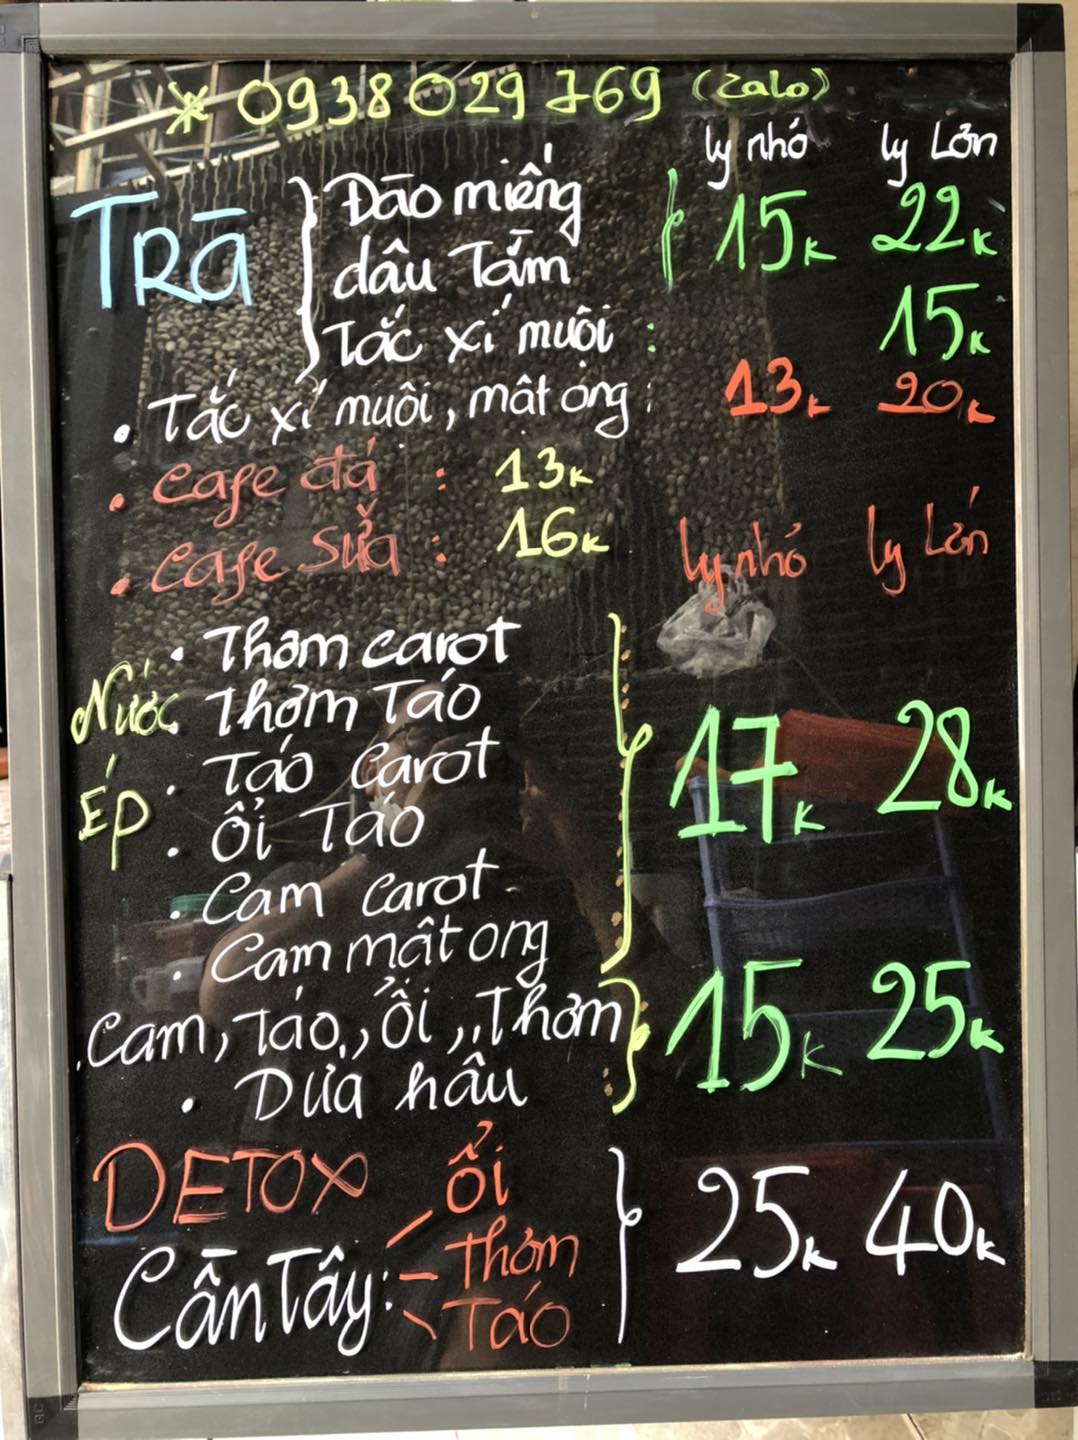 * 0938 029 769 (Zalo)
ly nhỏ ly Lớn
TRÀ Đào miếng 15K 22K
dâu Tằm
Tắc xí muội : 15K
• Tắc xí muội, mật ong : 13K 20K
• Cafe đá : 13K
• Cafe Sữa : 16K
ly nhỏ ly Lớn
Nước Ép
• Thơm carot
• Thơm Táo
• Táo Carot 17K 28K
• Ổi Táo
• Cam Carot
• Cam mật ong
• Cam, Táo, Ổi, Thơm 15K 25K
• Dưa hấu
DETOX Ổi
Cần Tây : Thơm 25K 40K
Táo